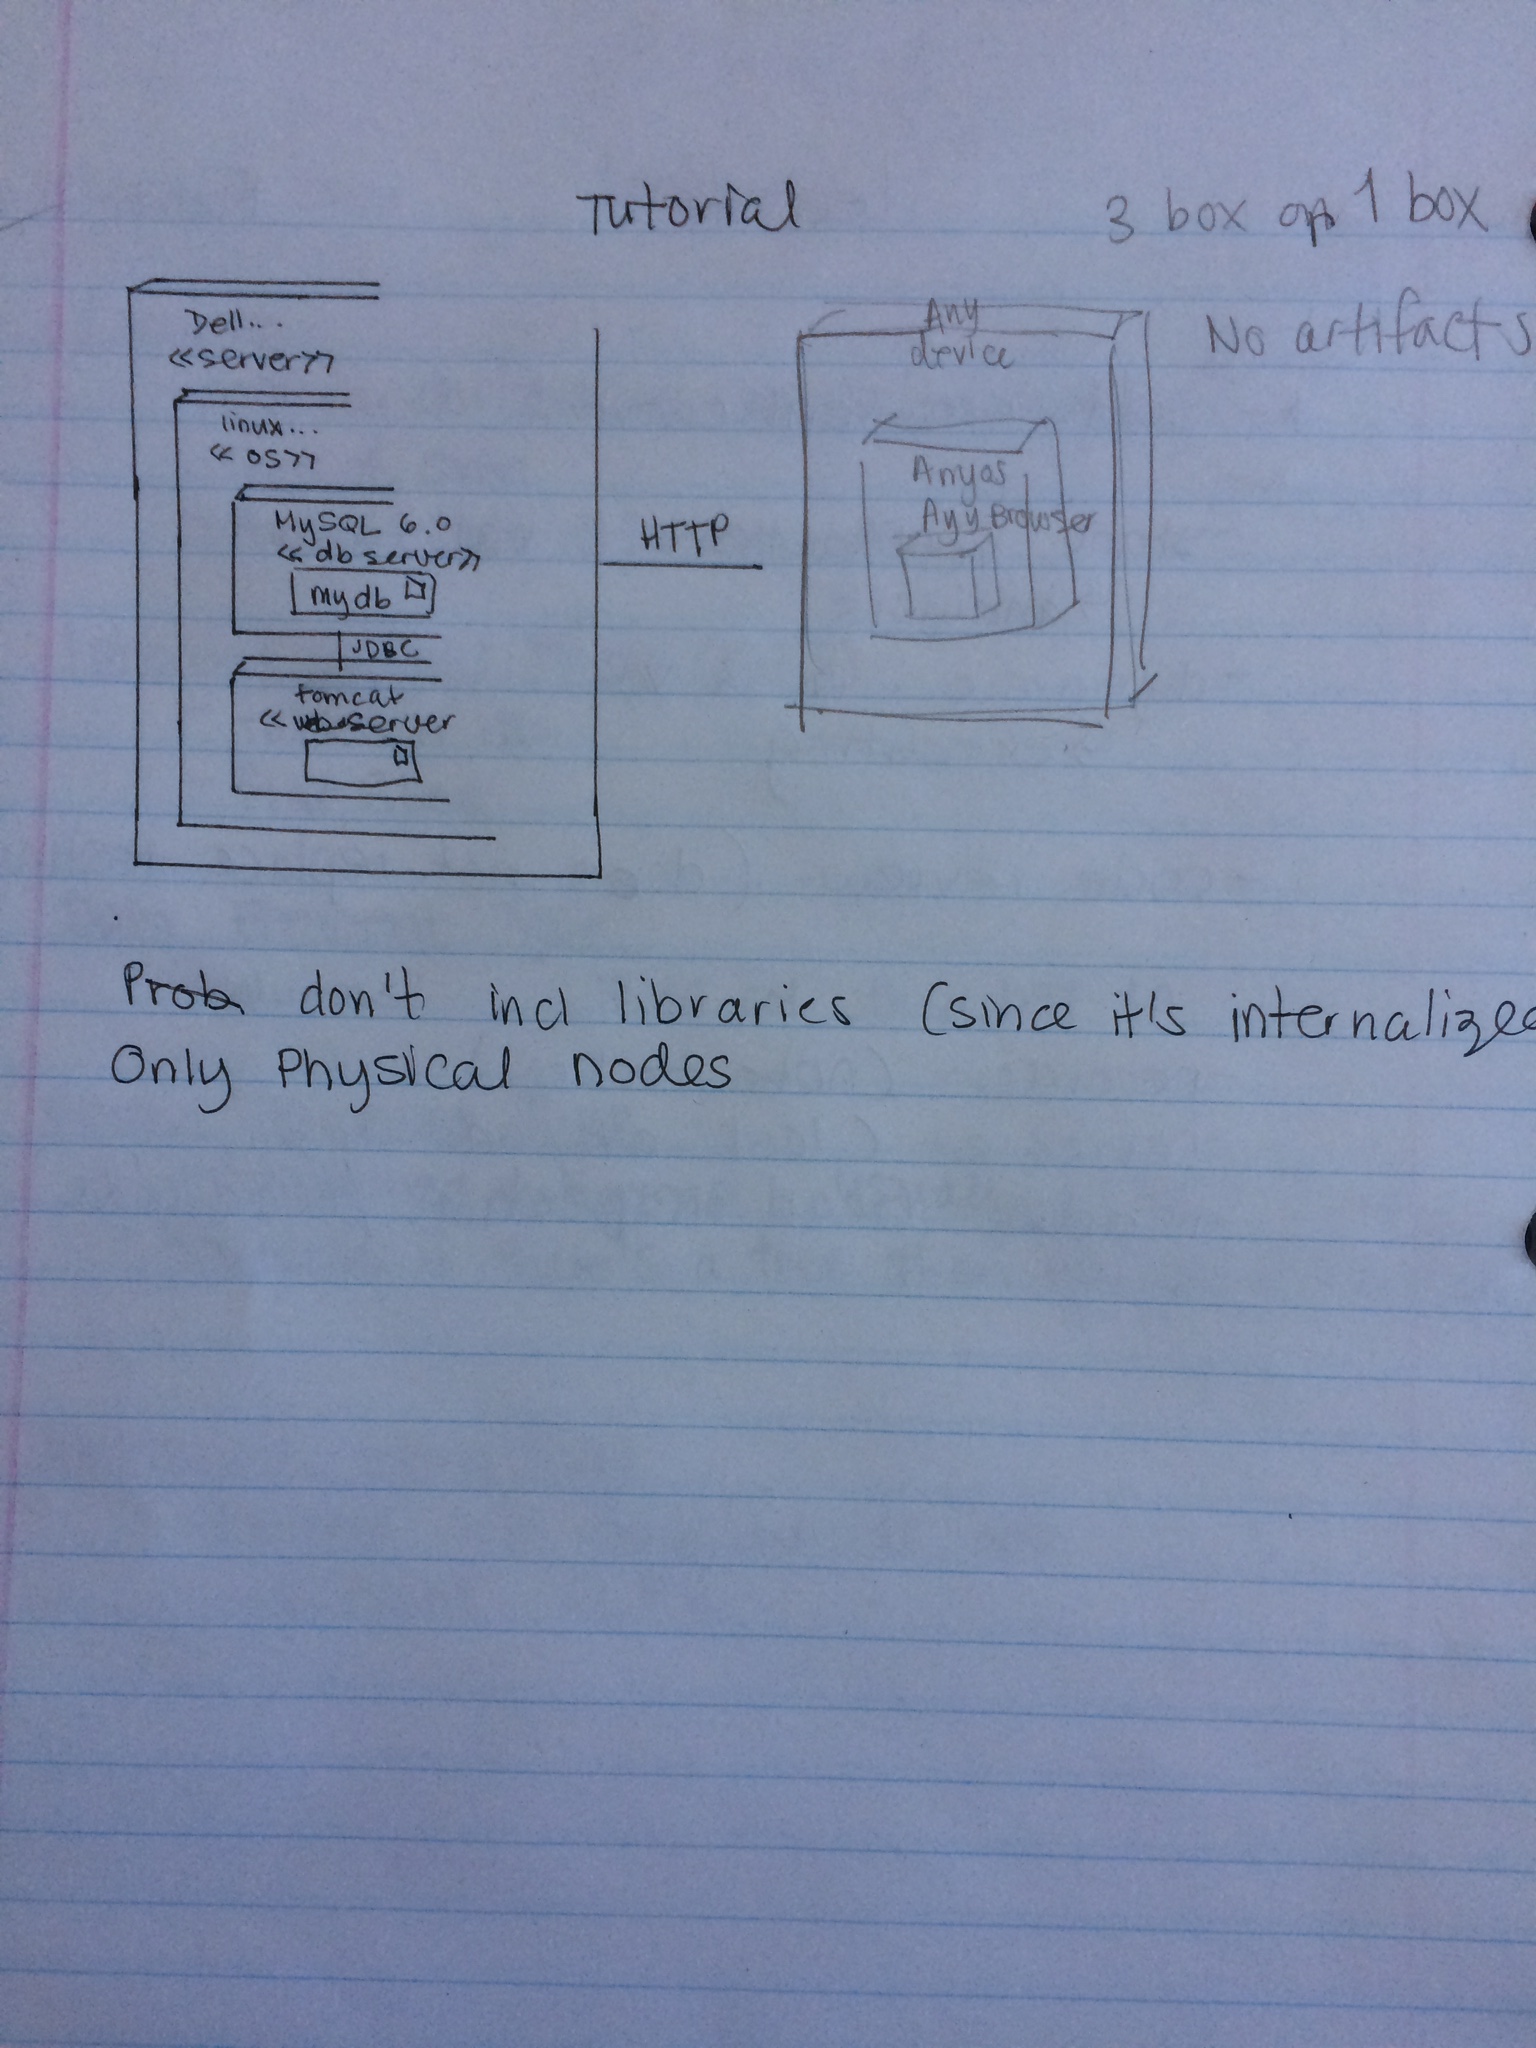 Tutorial
3 box on 1 box
No artifacts
Dell...
<<server>>
linux...
<<OS>>
MySQL 6.0
<<db server>>
mydb
JDBC
tomcat
<<web server
HTTP
Any
device
Anyos
Any Browser
Prob don't incl libraries (since it's internalized
Only Physical nodes